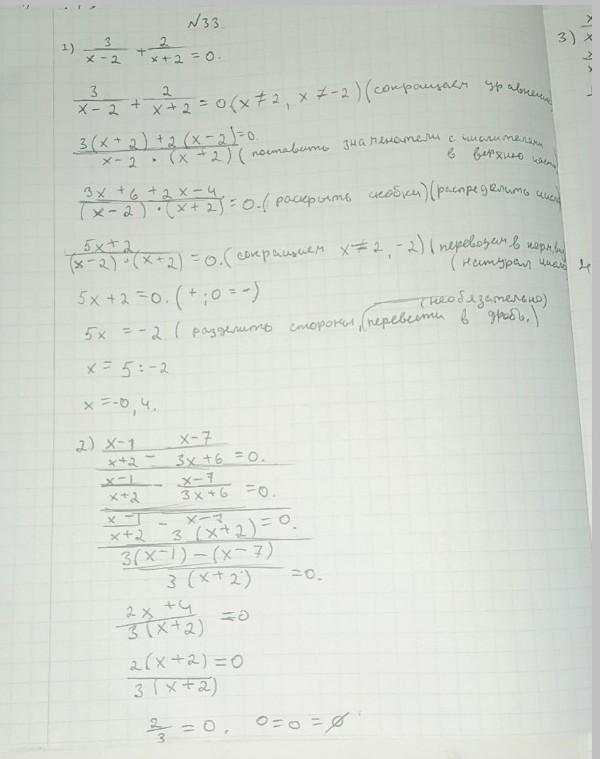 №33.
1) 3/(x-2) + 2/(x+2) = 0.
3/(x-2) + 2/(x+2) = 0 (x ≠ 2, x ≠ -2) (сокращаем уравнение
3(x+2)+2(x-2)/x-2 · (x+2) = 0. (поставить знаменатели с числителями в верхнюю
3x+6+2x-4/(x-2)·(x+2) = 0. (раскрыть скобки) (распределить
5x+2/(x-2)·(x+2) = 0. (сокращаем x ≠ 2, -2) (переводим в
(натурал число
5x+2=0. (+;0=-)
(необязательно)
5x = -2. (разделить стороны, перевести в дробь.)
x = 5:-2
x = -0,4.
2) x-1/x+2 - x-7/3x+6 = 0.
x-1/x+2 - x-7/3x+6 = 0.
x-1/x+2 - x-7/3(x+2) = 0.
3(x-1)-(x-7)/3(x+2) = 0.
2x+4/3(x+2) = 0
2(x+2)=0/3(x+2)
2/3 = 0. 0=0=∅
3)